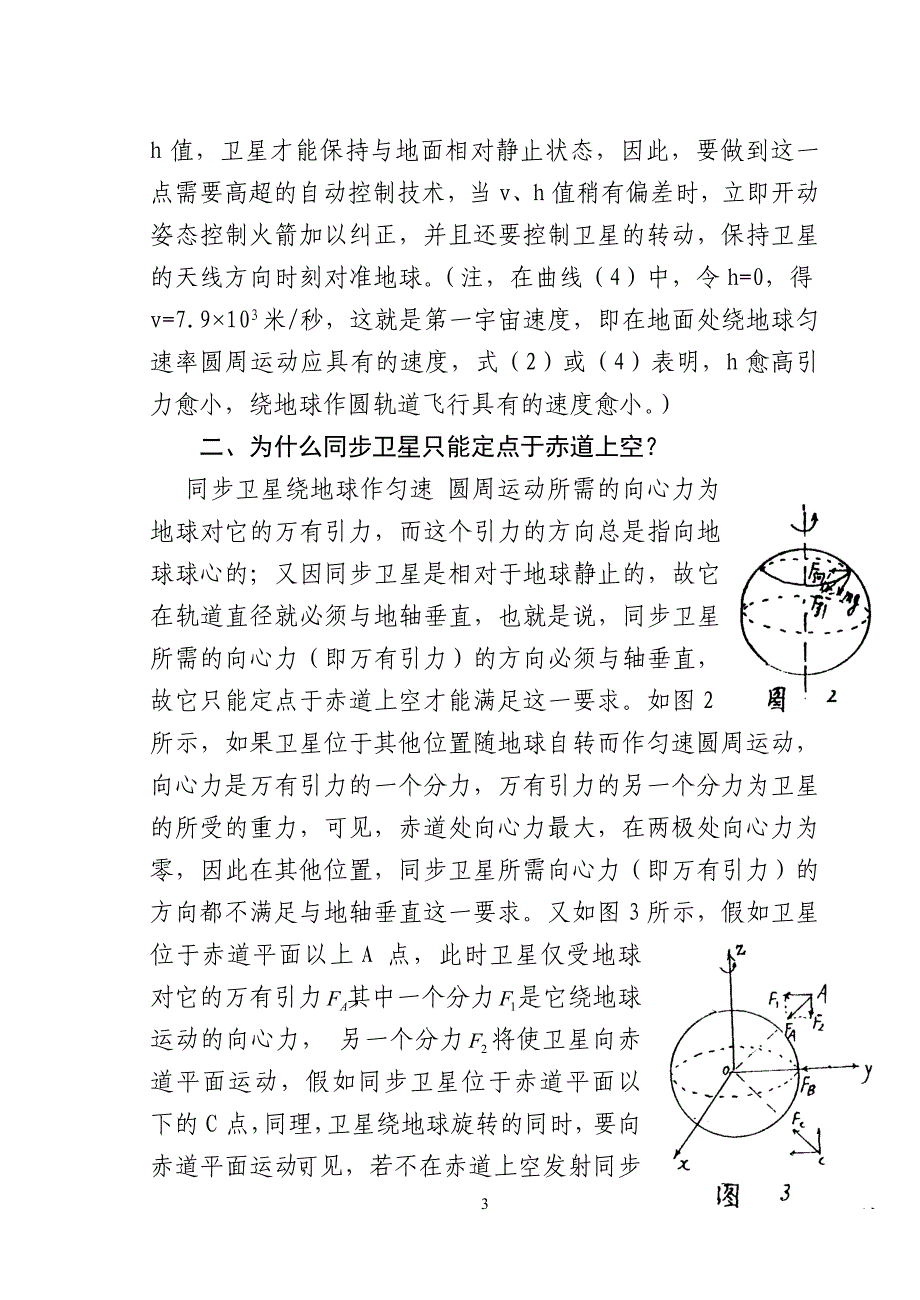 h 值，卫星才能保持与地面相对静止状态，因此，要做到这一
点需要高超的自动控制技术，当 v、h 值稍有偏差时，立即开动
姿态控制火箭加以纠正，并且还要控制卫星的转动，保持卫星
的天线方向时刻对准地球。（注，在曲线（4）中，令 h=0，得
v=7.9×10³米/秒，这就是第一宇宙速度，即在地面处绕地球匀
速率圆周运动应具有的速度，式（2）或（4）表明，h 愈高引
力愈小，绕地球作圆轨道飞行具有的速度愈小。）
二、为什么同步卫星只能定点于赤道上空？
同步卫星绕地球作匀速 圆周运动所需的向心力为
地球对它的万有引力，而这个引力的方向总是指向地
球球心的；又因同步卫星是相对于地球静止的，故它
在轨道直径就必须与地轴垂直，也就是说，同步卫星
所需的向心力（即万有引力）的方向必须与轴垂直，
故它只能定点于赤道上空才能满足这一要求。如图 2
所示，如果卫星位于其他位置随地球自转而作匀速圆周运动，
向心力是万有引力的一个分力，万有引力的另一个分力为卫星
的所受的重力，可见，赤道处向心力最大，在两极处向心力为
零，因此在其他位置，同步卫星所需向心力（即万有引力）的
方向都不满足与地轴垂直这一要求。又如图 3 所示，假如卫星
位于赤道平面以上 A 点，此时卫星仅受地球
对它的万有引力 F_A 其中一个分力 F₁ 是它绕地球
运动的向心力， 另一个分力 F₂ 将使卫星向赤
道平面运动，假如同步卫星位于赤道平面以
下的 C 点，同理，卫星绕地球旋转的同时，要向
赤道平面运动可见，若不在赤道上空发射同步
F向
F引
mg
图 2
z
F₁
A
F_A
F₂
o
F_B
y
F_c
x
c
图 3
3